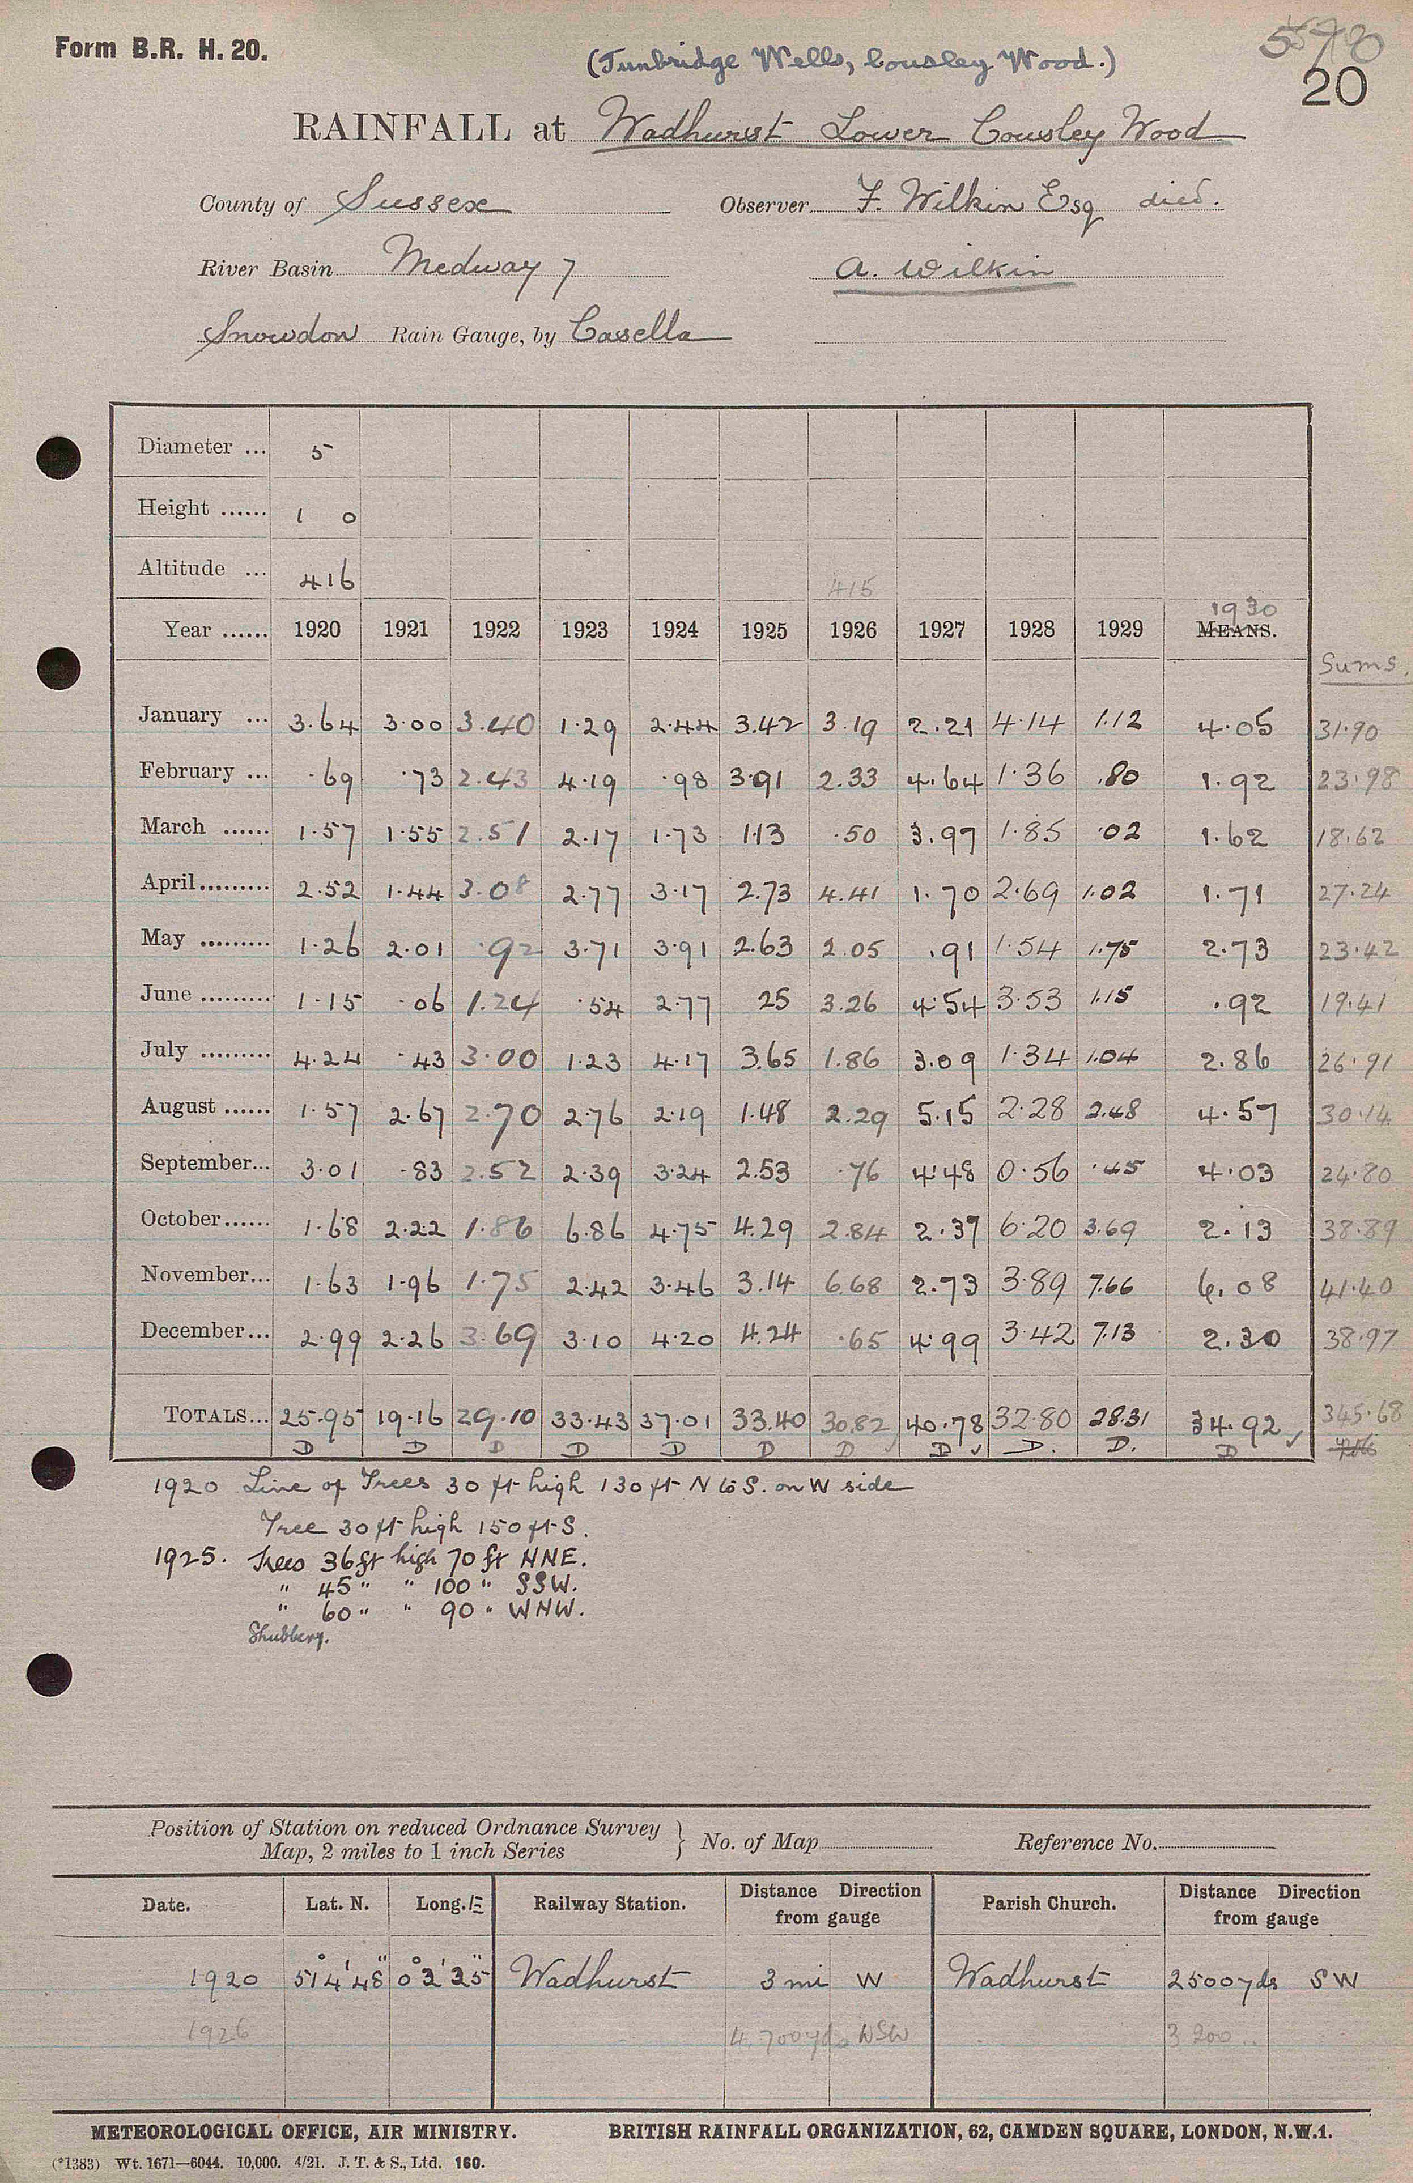 Form B.R. H. 20.
(Tunbridge Wells, Cousley Wood.)
20
RAINFALL at Wadhurst Lower Cousley Wood
County of Sussex Observer F. Wilkin Esq died.
River Basin Medway 7 A. Wilkin
Snowdon Rain Gauge, by Casella
Diameter ... 5
Height ...... 1 0
Altitude ... 416 415
1930
Year ...... 1920 1921 1922 1923 1924 1925 1926 1927 1928 1929 MEANS.
Sums.
January ... 3.64 3.00 3.40 1.29 2.44 3.42 3.19 2.21 4.14 1.12 4.05 31.90
February ... .69 .73 2.43 4.19 .98 3.91 2.33 4.64 1.36 .80 1.92 23.98
March ...... 1.57 1.55 2.51 2.17 1.73 1.13 .50 3.97 1.85 .02 1.62 18.62
April......... 2.52 1.44 3.08 2.77 3.17 2.73 4.41 1.70 2.69 1.02 1.71 27.24
May ......... 1.26 2.01 .92 3.71 3.91 2.63 2.05 .91 1.54 1.75 2.73 23.42
June ......... 1.15 .06 1.24 .54 2.77 25 3.26 4.54 3.53 1.15 .92 19.41
July ......... 4.24 .43 3.00 1.23 4.17 3.65 1.86 3.09 1.34 1.04 2.86 26.91
August ...... 1.57 2.67 2.70 2.76 2.19 1.48 2.29 5.15 2.28 2.48 4.57 30.14
September... 3.01 .83 2.52 2.39 3.24 2.53 .76 4.48 0.56 .45 4.03 24.80
October...... 1.68 2.22 1.86 6.86 4.75 4.29 2.84 2.37 6.20 3.69 2.13 38.89
November... 1.63 1.96 1.75 2.42 3.46 3.14 6.68 2.73 3.89 7.66 6.08 41.40
December... 2.99 2.26 3.69 3.10 4.20 4.24 .65 4.99 3.42 7.13 2.30 38.97
TOTALS... 25.95 19.16 29.10 33.43 37.01 33.40 30.82 40.78 32.80 28.31 34.92 345.68
D D D D D D D D D. D. D
1920 Line of Trees 30 ft high 130 ft N to S. on W side
Tree 30 ft high 150 ft S.
1925. Trees 36 ft high 70 ft NNE.
" 45 " " 100 " SSW.
" 60 " " 90 " WNW.
Shubbery.
Position of Station on reduced Ordnance Survey
Map, 2 miles to 1 inch Series } No. of Map Reference No.
Date. Lat. N. Long. E Railway Station. Distance Direction from gauge Parish Church. Distance Direction from gauge
1920 51° 4' 48" 0° 2' 25" Wadhurst 3 mi W Wadhurst 2500 yds SW
1926 4,700 yds WSW 3 200 ..
METEOROLOGICAL OFFICE, AIR MINISTRY. BRITISH RAINFALL ORGANIZATION, 62, CAMDEN SQUARE, LONDON, N.W.1.
(*1383) Wt. 1671—6044. 10,000. 4/21. J. T. & S., Ltd. 160.